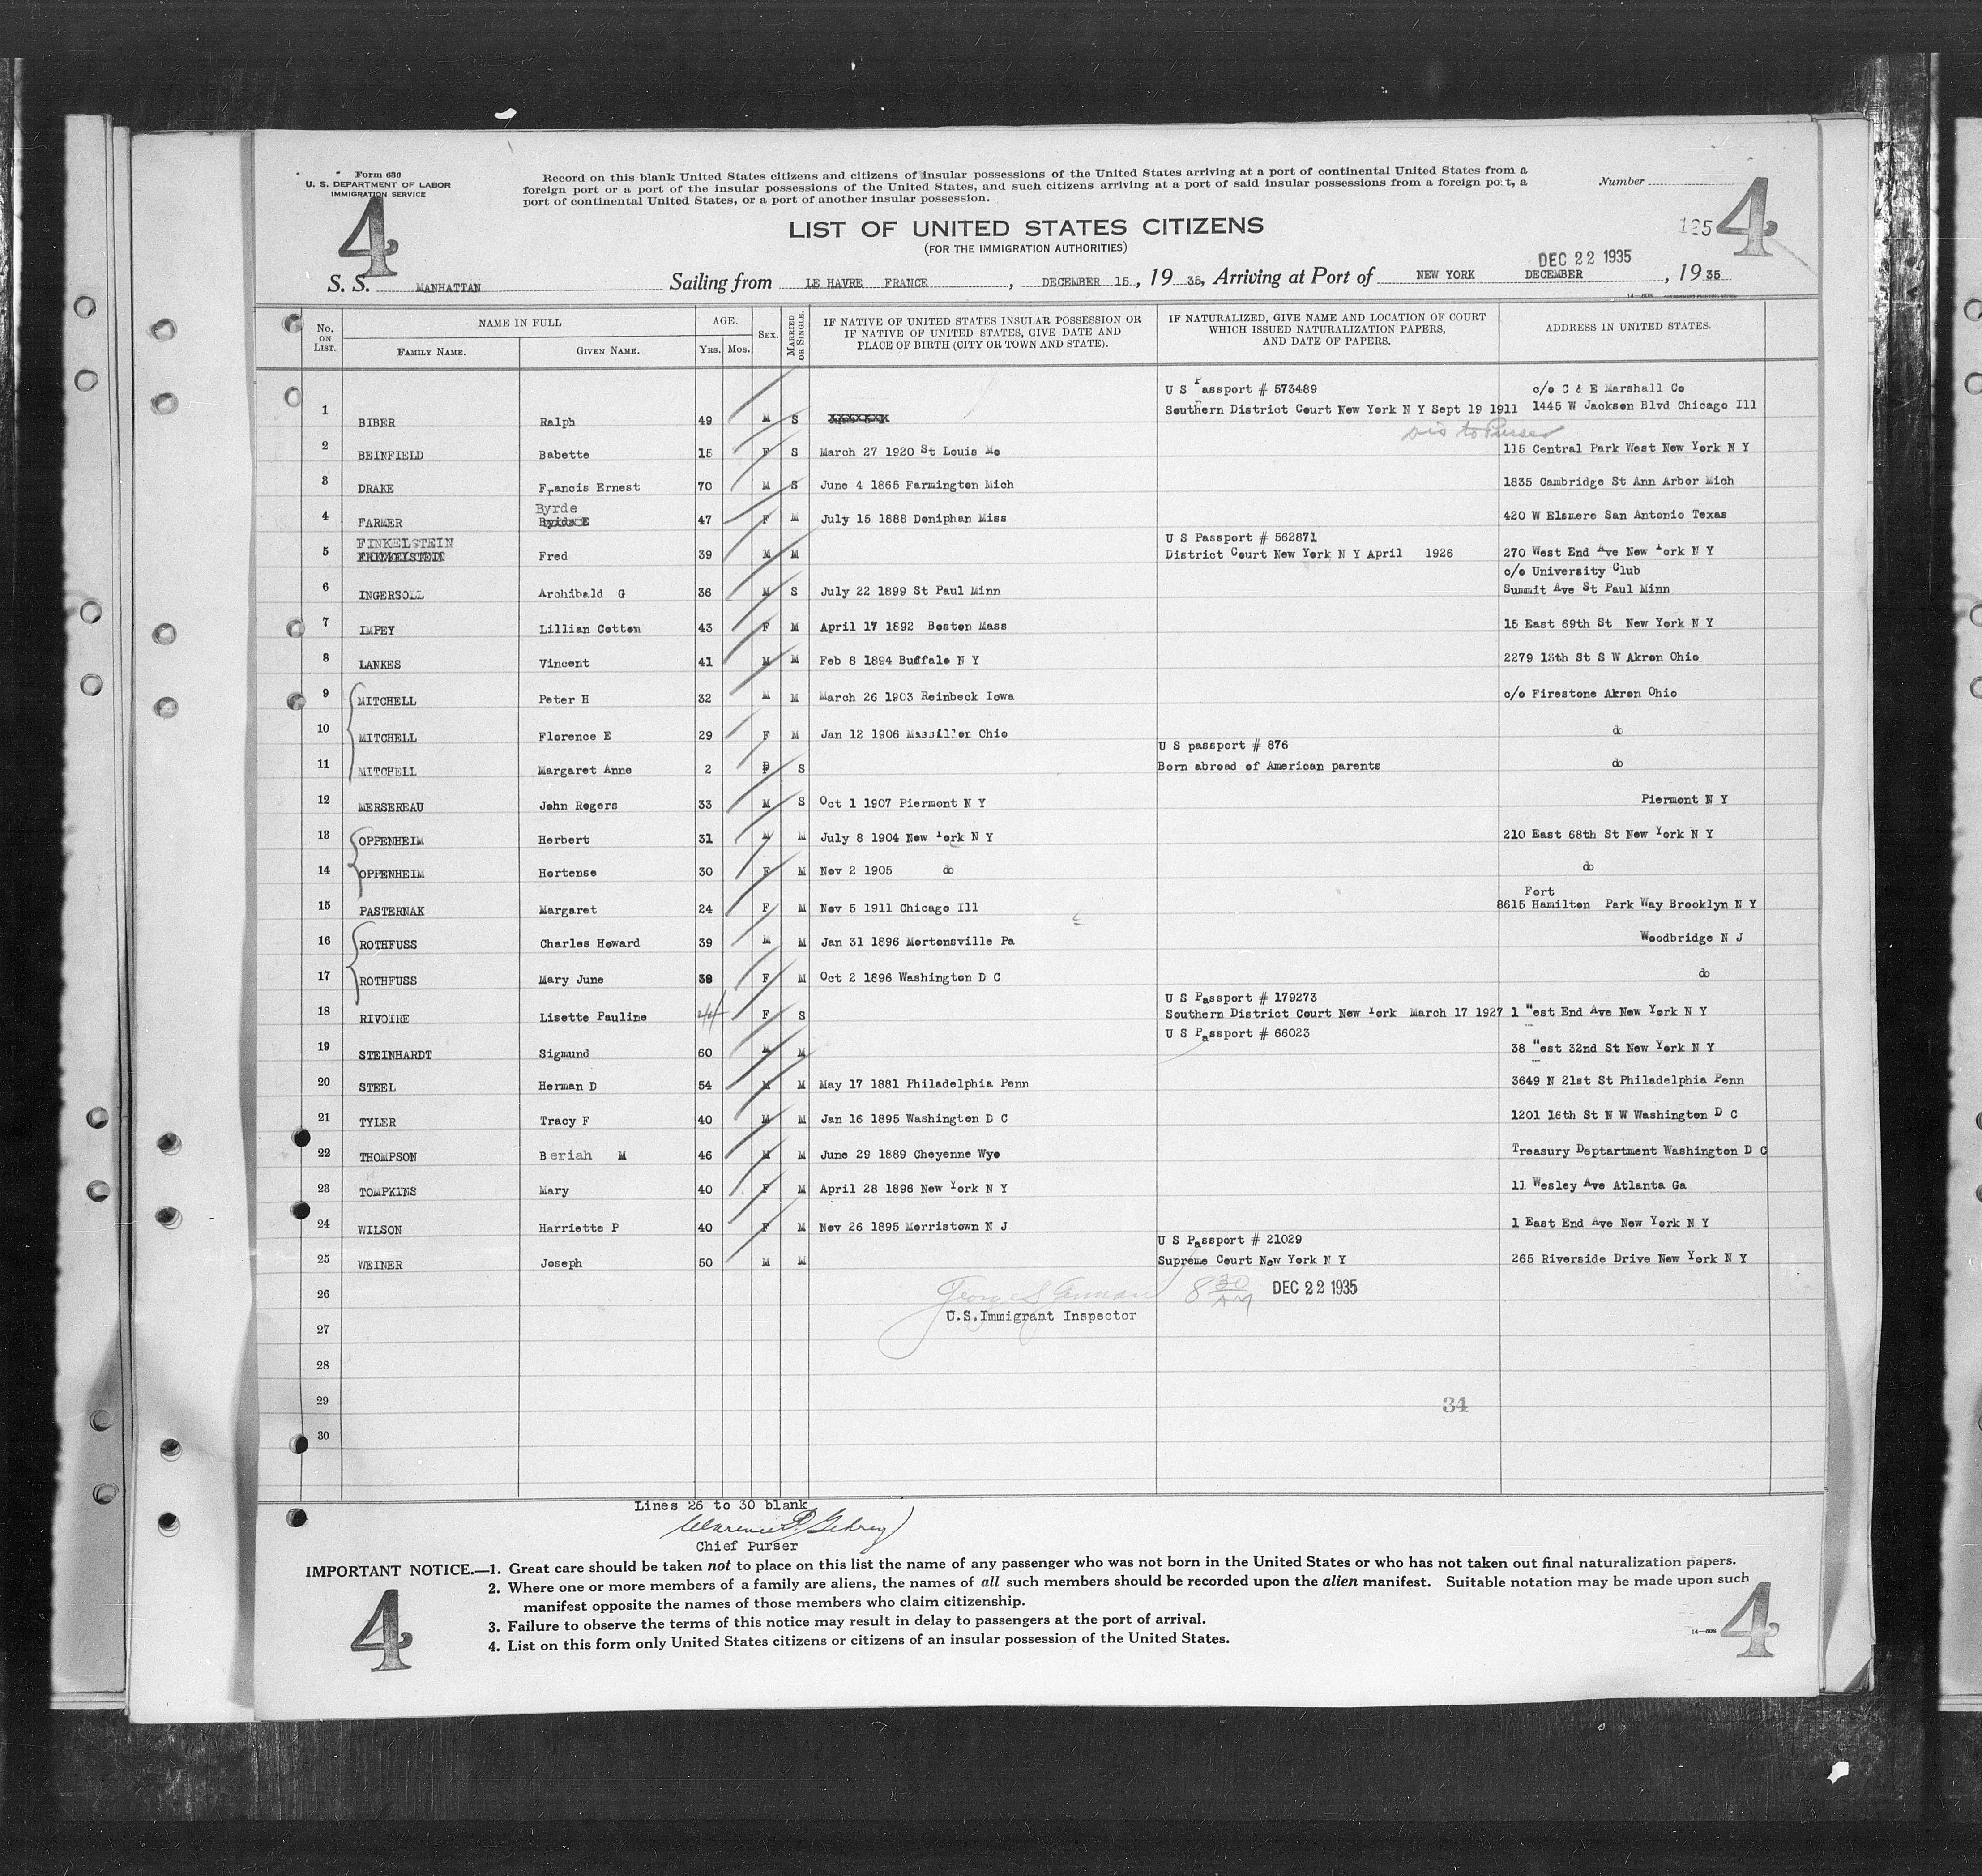 Form 630
U. S. DEPARTMENT OF LABOR
IMMIGRATION SERVICE
Record on this blank United States citizens and citizens of insular possessions of the United States arriving at a port of continental United States from a
foreign port or a port of the insular possessions of the United States, and such citizens arriving at a port of said insular possessions from a foreign port, a
port of continental United States, or a port of another insular possession.
Number
4
125 4
LIST OF UNITED STATES CITIZENS
(FOR THE IMMIGRATION AUTHORITIES)
DEC 22 1935
S. S. MANHATTAN Sailing from LE HAVRE FRANCE, DECEMBER 15, 19 35, Arriving at Port of NEW YORK DECEMBER, 19 35
14—608
No. ON LIST. NAME IN FULL FAMILY NAME. GIVEN NAME. AGE. YRS. MOS. SEX. MARRIED OR SINGLE. IF NATIVE OF UNITED STATES INSULAR POSSESSION OR IF NATIVE OF UNITED STATES, GIVE DATE AND PLACE OF BIRTH (CITY OR TOWN AND STATE). IF NATURALIZED, GIVE NAME AND LOCATION OF COURT WHICH ISSUED NATURALIZATION PAPERS, AND DATE OF PAPERS. ADDRESS IN UNITED STATES.
U S Passport # 573489 c/o C & E Marshall Co
1 BIBER Ralph 49 M S Southern District Court New York N Y Sept 19 1911 1445 W Jackson Blvd Chicago Ill
2 BEINFIELD Babette 15 F S March 27 1920 St Louis Mo 115 Central Park West New York N Y
3 DRAKE Francis Ernest 70 M S June 4 1865 Farmington Mich 1835 Cambridge St Ann Arbor Mich
Byrde
4 FARMER 47 F M July 15 1888 Doniphan Miss 420 W Elsmere San Antonio Texas
FINKELSTEIN U S Passport # 562871
5 Fred 39 M M District Court New York N Y April 1926 270 West End Ave New York N Y
c/o University Club
6 INGERSOLL Archibald G 36 M S July 22 1899 St Paul Minn Summit Ave St Paul Minn
7 IMPEY Lillian Cotton 43 F M April 17 1892 Boston Mass 15 East 69th St New York N Y
8 LANKES Vincent 41 M M Feb 8 1894 Buffalo N Y 2279 13th St S W Akron Ohio
9 MITCHELL Peter H 32 M M March 26 1903 Reinbeck Iowa c/o Firestone Akron Ohio
10 MITCHELL Florence E 29 F M Jan 12 1906 Massillon Ohio do
U S passport # 876
11 MITCHELL Margaret Anne 2 F S Born abroad of American parents do
12 MERSEREAU John Rogers 33 M S Oct 1 1907 Piermont N Y Piermont N Y
13 OPPENHEIM Herbert 31 M M July 8 1904 New York N Y 210 East 68th St New York N Y
14 OPPENHEIM Hortense 30 F M Nov 2 1905 do do
Fort
15 PASTERNAK Margaret 24 F M Nov 5 1911 Chicago Ill 8615 Hamilton Park Way Brooklyn N Y
16 ROTHFUSS Charles Howard 39 M M Jan 31 1896 Mortonsville Pa Woodbridge N J
17 ROTHFUSS Mary June 38 F M Oct 2 1896 Washington D C do
U S Passport # 179273
18 RIVOIRE Lisette Pauline 44 F S Southern District Court New York March 17 1927 1 West End Ave New York N Y
U S Passport # 66023
19 STEINHARDT Sigmund 60 M M 38 West 32nd St New York N Y
20 STEEL Herman D 54 M M May 17 1881 Philadelphia Penn 3649 N 21st St Philadelphia Penn
21 TYLER Tracy F 40 M M Jan 16 1895 Washington D C 1201 16th St N W Washington D C
22 THOMPSON Beriah M 46 M M June 29 1889 Cheyenne Wyo Treasury Deptartment Washington D C
23 TOMPKINS Mary 40 F M April 28 1896 New York N Y 11 Wesley Ave Atlanta Ga
24 WILSON Harriette P 40 F M Nov 26 1895 Morristown N J 1 East End Ave New York N Y
U S Passport # 21029
25 WEINER Joseph 50 M M Supreme Court New York N Y 265 Riverside Drive New York N Y
26 8 30 AM DEC 22 1935
U.S. Immigrant Inspector
27
28
29 34
30
Lines 26 to 30 blank
Chief Purser
IMPORTANT NOTICE.—1. Great care should be taken not to place on this list the name of any passenger who was not born in the United States or who has not taken out final naturalization papers.
2. Where one or more members of a family are aliens, the names of all such members should be recorded upon the alien manifest. Suitable notation may be made upon such
manifest opposite the names of those members who claim citizenship.
3. Failure to observe the terms of this notice may result in delay to passengers at the port of arrival.
4. List on this form only United States citizens or citizens of an insular possession of the United States.
14—608
4
4